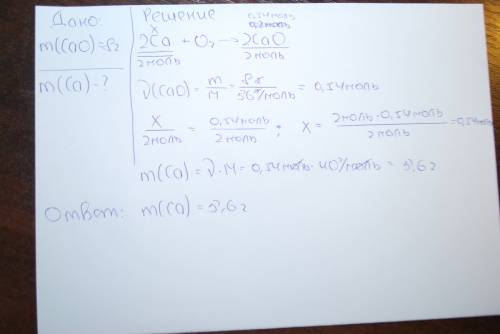 Дано:
m(CaO)=8г
m(Ca)-?
Решение
0,14моль
x
2Ca + O₂ → 2CaO
2моль 2моль
ν(CaO) = m/M = 8г/56г/моль = 0,14моль
x/2моль = 0,14моль/2моль ; x = 2моль·0,14моль/2моль = 0,14моль
m(Ca) = ν·M = 0,14моль·40г/моль = 5,6г
Ответ: m(Ca) = 5,6г